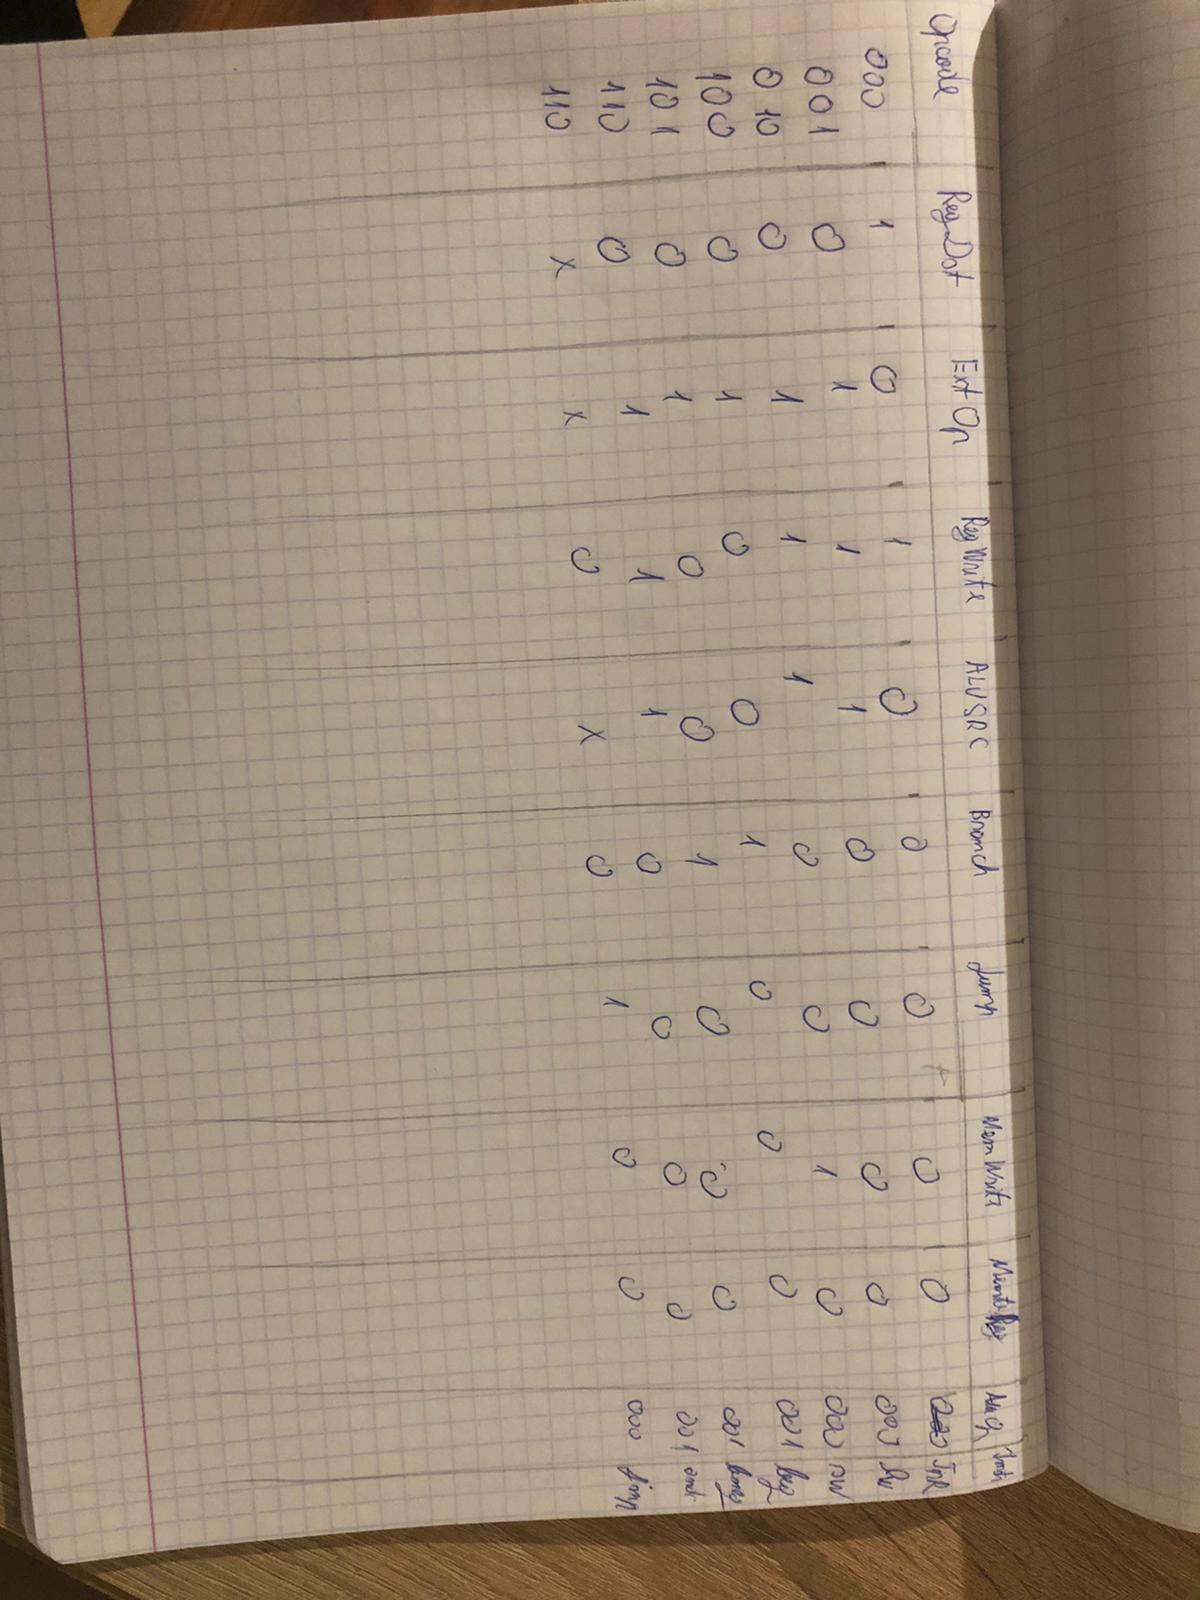 Opcode Reg Dst Ext Op Reg Write ALUSRC Branch Jump Mem Write MemtoReg
000 1 0 1 0 0 0 0 0
001 0 1 1 1 0 0 0 0 000 lw
010 0 1 1 1 0 0 1 0 000 sw
100 0 1 0 0 1 0 0 0 001 beq
101 0 1 0 0 1 0 0 0 001
110 0 1 1 1 0 0 0 0 001
110 x x 0 x 0 1 0 0 000 jump